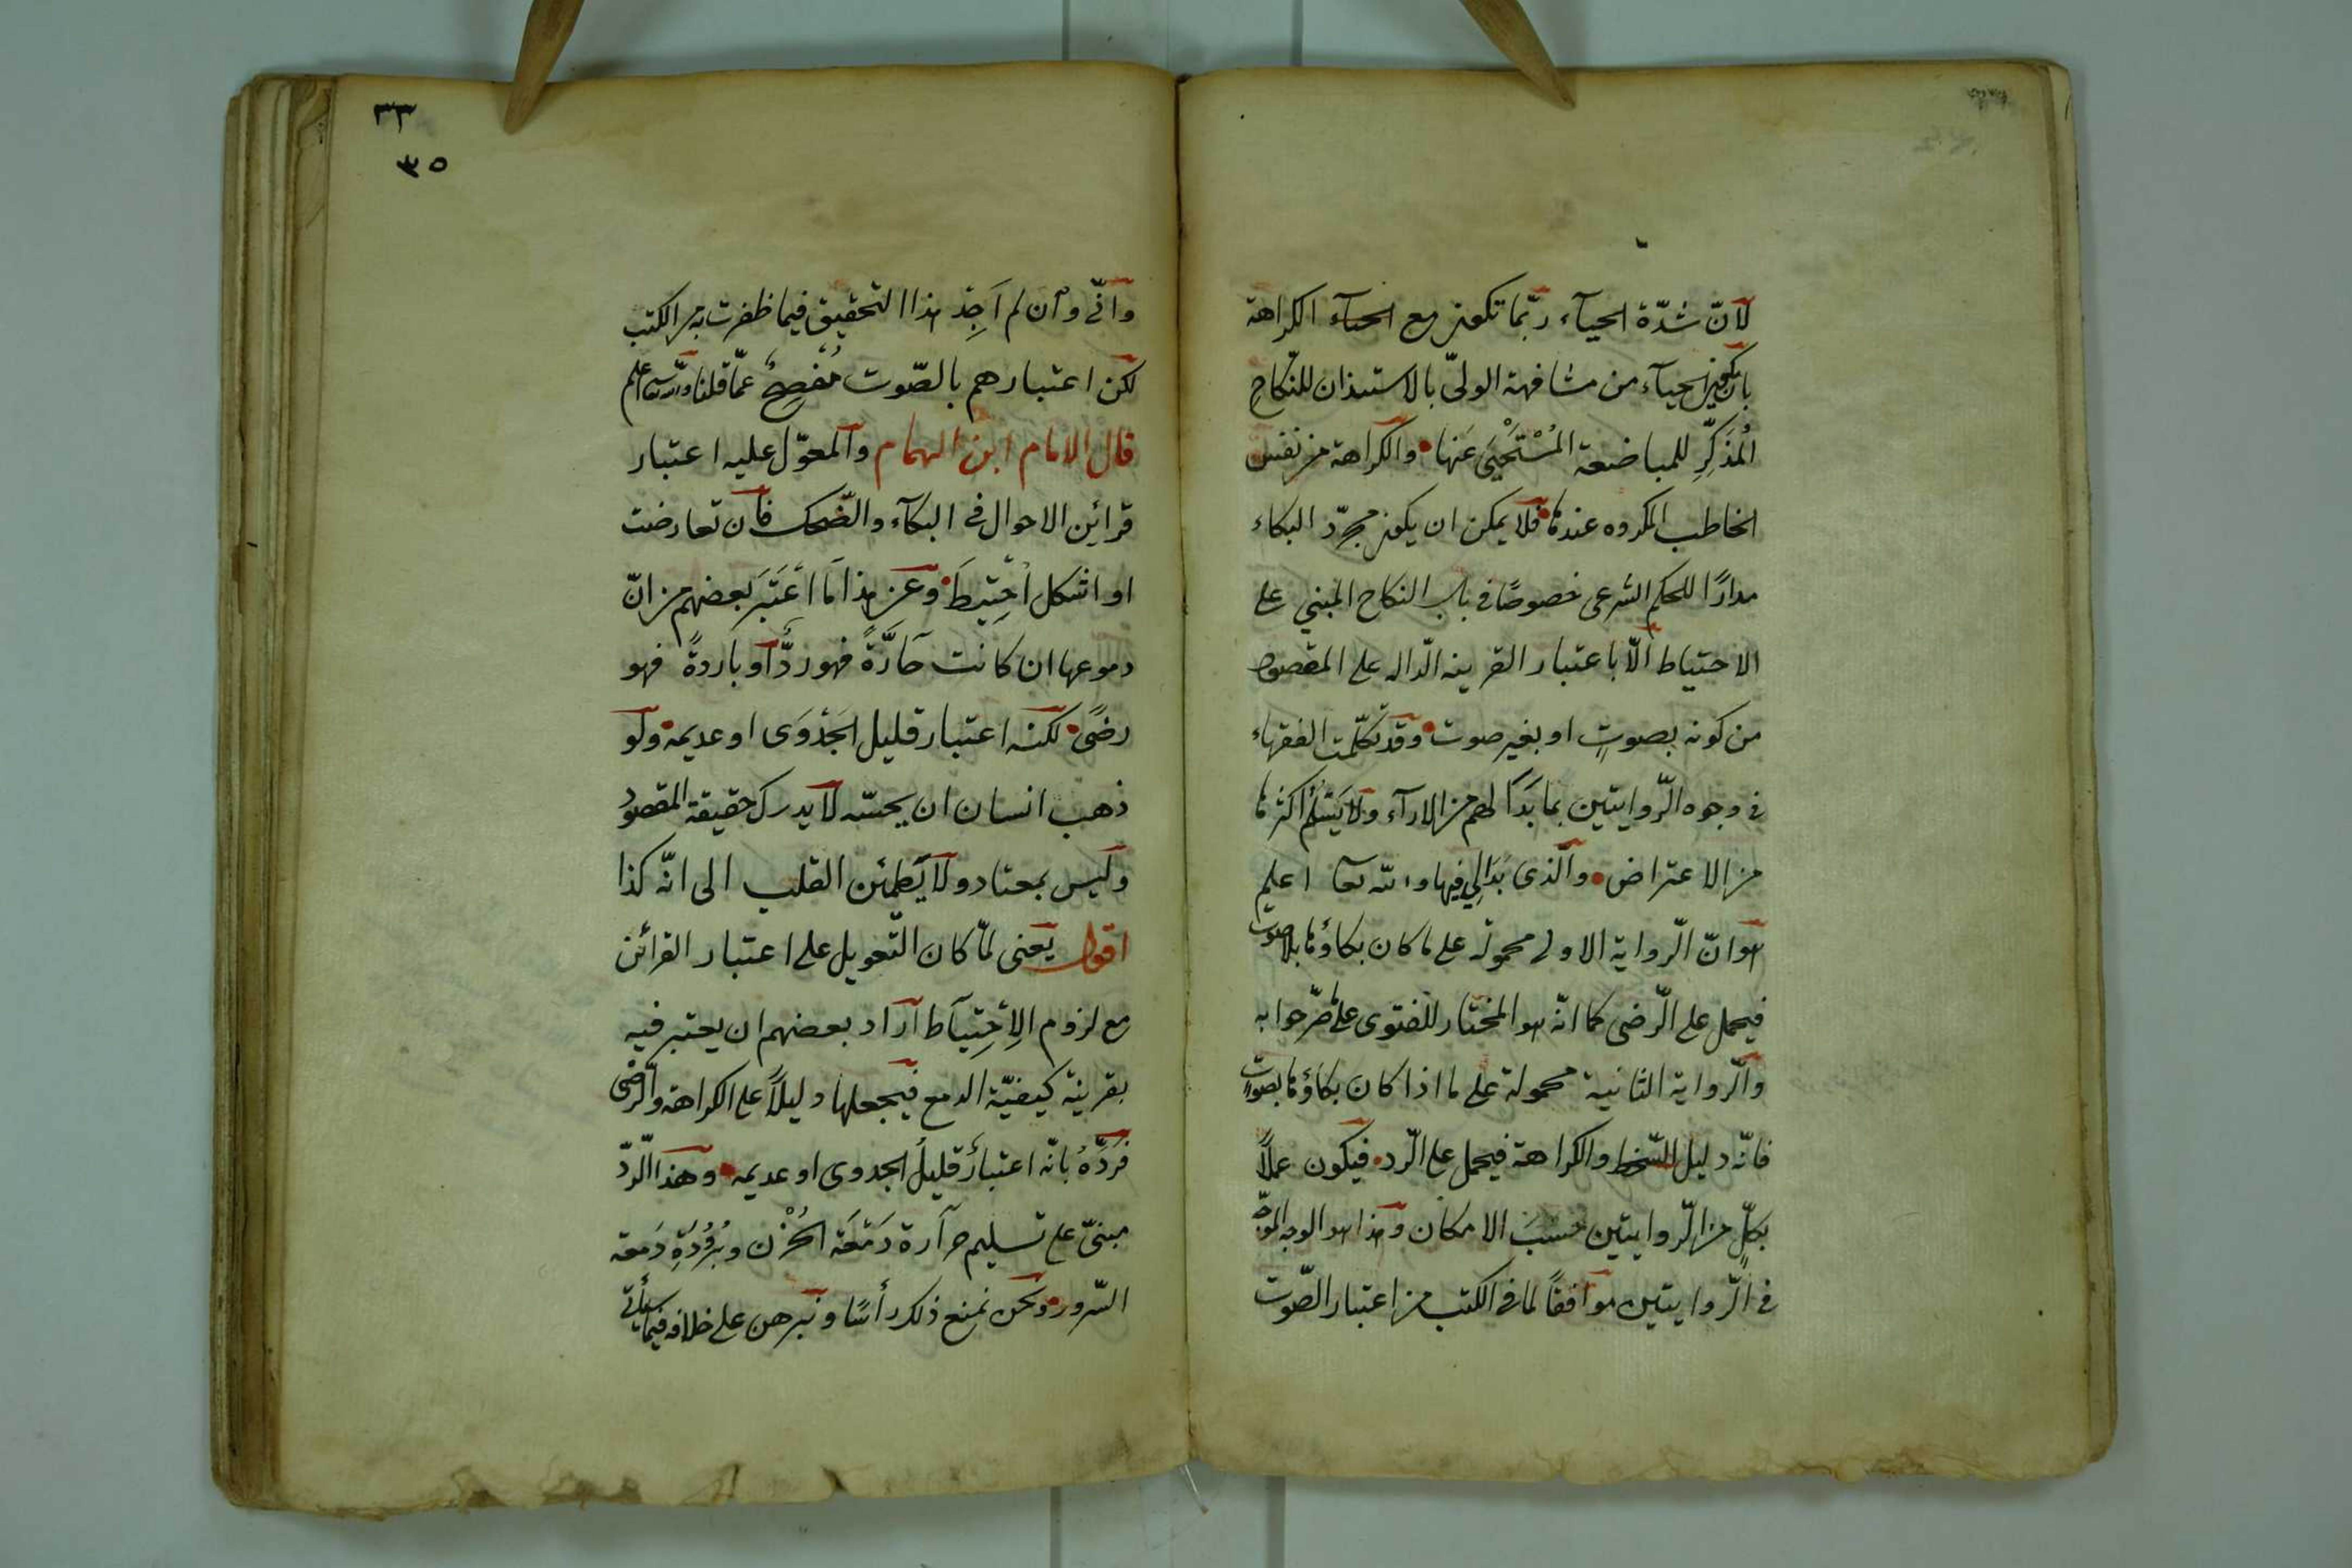 لانّ شدّة الحيآء ربّما تكون مع الحيآء الكراهة
بان يكون الحيآء من مشافهة الولىّ بالاستيذان للنّكاح
المُذكِّرِ للمباضعة المُسْتَحْيَى عَنها والكراهة من نفس
الخاطب المكروه عندها فلا يمكن ان يكون مجرّد البكاء
مدارًا للحكم الشرعى خصوصًا فى باب النكاح المبني على
الاحتياط الّا باعتبار القرينه الدّاله على المقصود
من كونه بصوتٍ او بغير صوت وقد تكلّمت الفقهاء
فى وجوه الرّوايتين بما بَدَا لهم من الارآء ولا يَسْلَمُ اكثرها
من الاعتراض والّذى بَدَا لِي فيها والله تعآ اعلم
هو انّ الرّواية الاولى محمولة على ما كان بكاؤها بلا صوت
فيحمل على الرّضى كما انّه هو المختار للفتوى على ما صرّحوا به
والرّواية الثانية محمولة على ما اذا كان بكاؤها بصوت
فانّه دليل السّخط والكراهة فيحمل على الرّد فيكون عملًا
بكلٍّ من الرّوايتين حسبَ الامكان وهذا هو الوجه الموجّه
فى الرّوايتين موافقًا لما فى الكتب من اعتبار الصّوت
٣٣
٣٥
وانّى وان لم اَجِد هذا التحقيق فيما ظفرت به من الكتب
لكن اعتبارهم بالصّوت مُفْصِحٌ عمّا قلنا والله تعآ اعلم
قال الامام ابن الهمام والمعوّل عليه اعتبار
قرائن الاحوال فى البكآء والضّحك فان تعارضت
او اشكل اُحْتِيطَ وعن هذا ما اعْتَبَرَ بعضهم من انّ
دموعها ان كانت حَارَّةً فهو ردٌّ او باردةً فهو
رضًى لكنه اعتبار قليل الجَدْوَى او عديمه ولو
ذهب انسان ان يحسّه لا يدرك حقيقة المقصود
وليس بمعتاد ولا يَطمئن القلب الى انّه كذا
اقول يعنى لمّا كان التّعويل على اعتبار القرائن
مع لزوم الاِحْتِيَاط اَرَاد بعضهم ان يعتبر فيه
بقرينة كيفيّة الدمع فيجعلها دليلًا على الكراهة والرّضى
فردّهُ بانّه اعتبارٌ قليلُ الجدوى او عديمه وهذا الرّدّ
مبنىّ على تسليم حرَارة دَمْعَة الحُزْن وبُرُودَةِ دَمعة
السّرور ونحن نمنع ذلك رأسًا ونبرهن على خلافه فيما سيأتى